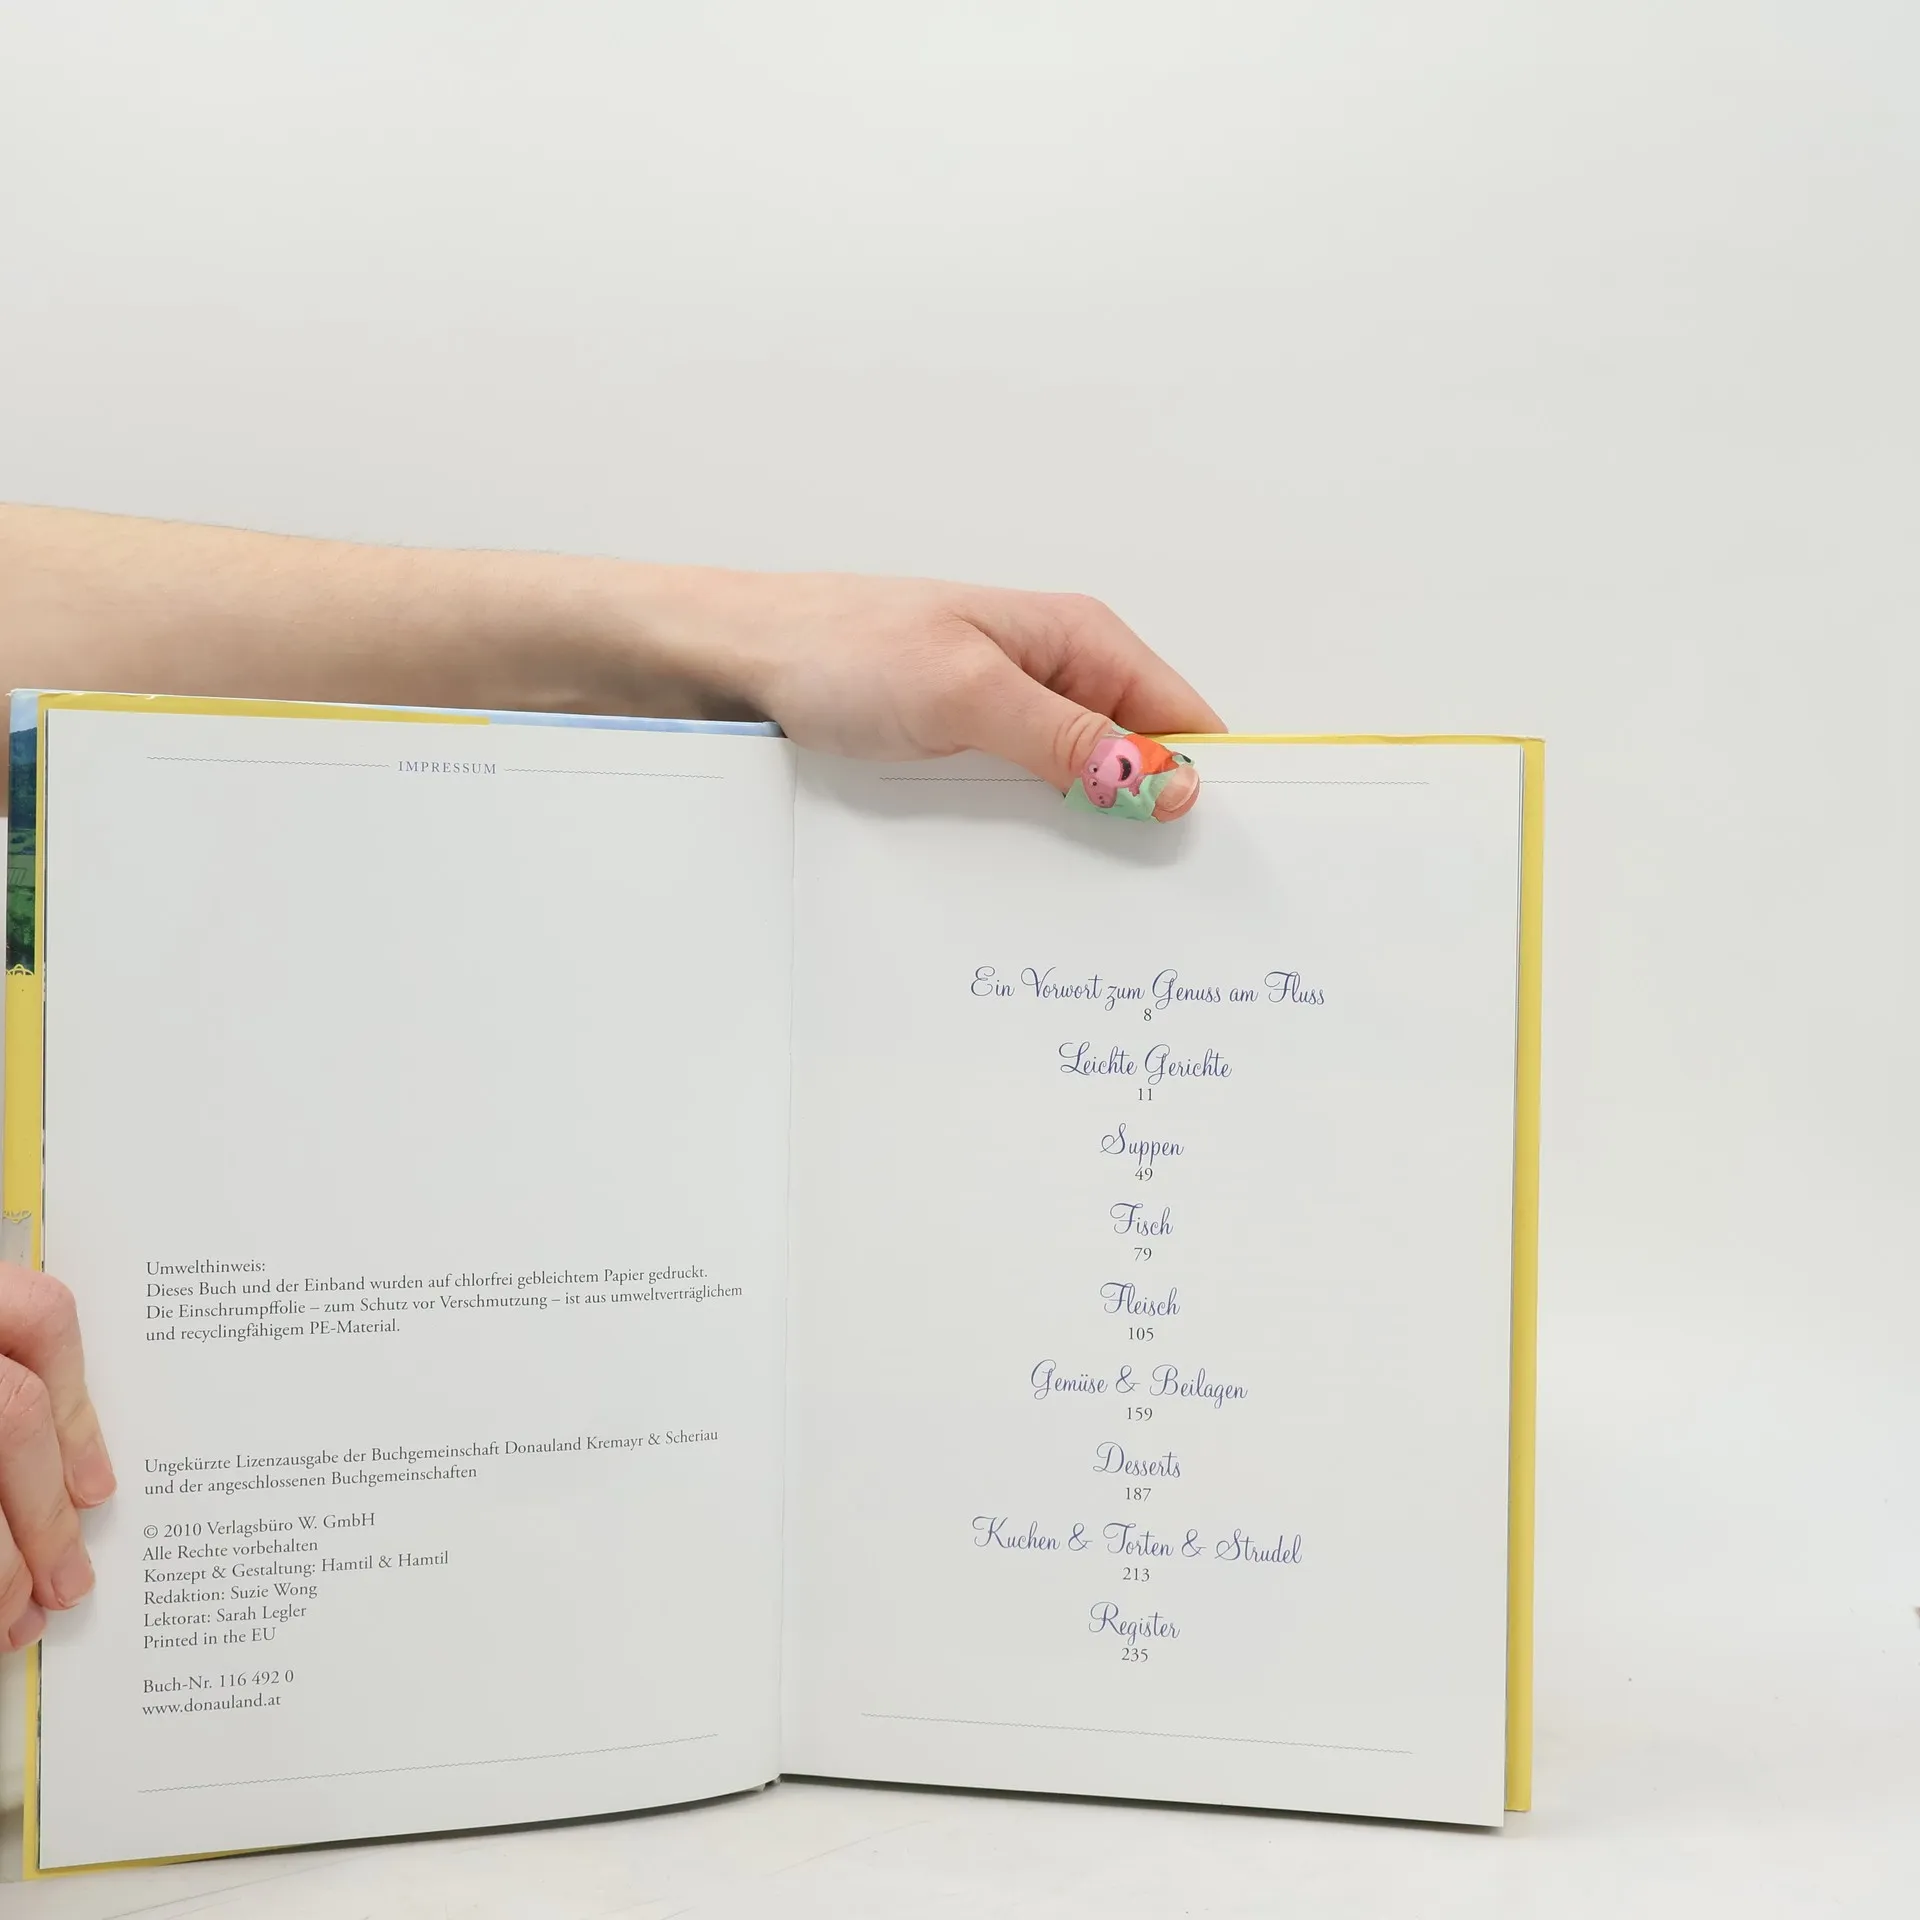 IMPRESSUM
Umwelthinweis:
Dieses Buch und der Einband wurden auf chlorfrei gebleichtem Papier gedruckt.
Die Einschrumpffolie – zum Schutz vor Verschmutzung – ist aus umweltverträglichem
und recyclingfähigem PE-Material.
Ungekürzte Lizenzausgabe der Buchgemeinschaft Donauland Kremayr & Scheriau
und der angeschlossenen Buchgemeinschaften
© 2010 Verlagsbüro W. GmbH
Alle Rechte vorbehalten
Konzept & Gestaltung: Hamtil & Hamtil
Redaktion: Suzie Wong
Lektorat: Sarah Legler
Printed in the EU
Buch-Nr. 116 492 0
www.donauland.at
Ein Vorwort zum Genuss am Fluss
8
Leichte Gerichte
11
Suppen
49
Fisch
79
Fleisch
105
Gemüse & Beilagen
159
Desserts
187
Kuchen & Torten & Strudel
213
Register
235